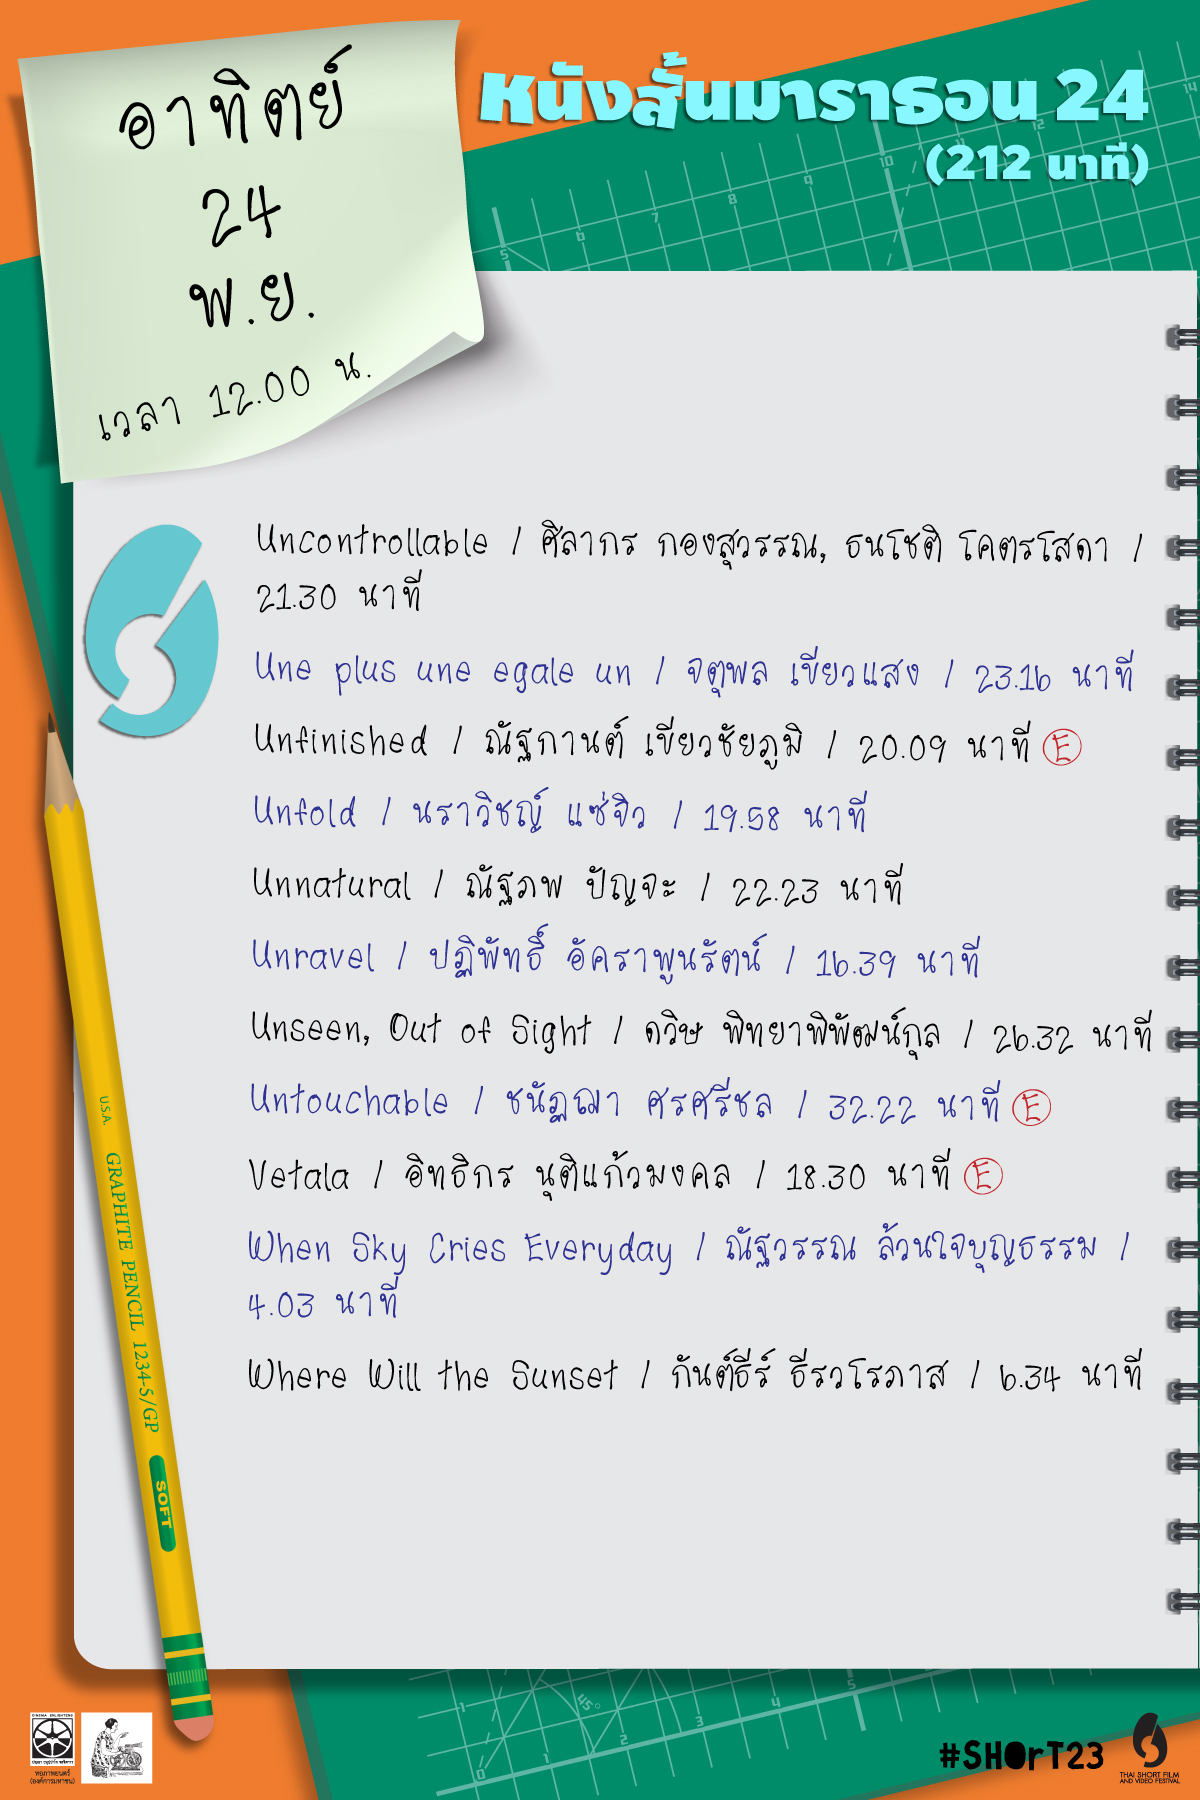 อาทิตย์
24
พ.ย.
เวลา 12.00 น.
หนังสั้นมาราธอน 24
(212 นาที)
Uncontrollable / ศิลากร กองสุวรรณ, ธนโชติ โคตรโสดา /
21.30 นาที
Une plus une egale un / จตุพล เขียวแสง / 23.16 นาที
Unfinished / ณัฐกานต์ เขียวชัยภูมิ / 20.09 นาที E
Unfold / นราวิชญ์ แซ่จิว / 19.58 นาที
Unnatural / ณัฐภพ ปัญจะ / 22.23 นาที
Unravel / ปฏิพัทธิ์ อัคราพูนรัตน์ / 16.39 นาที
Unseen, Out of Sight / ดวิษ พิทยาพิพัฒน์กุล / 26.32 นาที
Untouchable / ชนัฏฌา ศรศรีชล / 32.22 นาที E
Vetala / อิทธิกร นุติแก้วมงคล / 18.30 นาที E
When Sky Cries Everyday / ณัฐวรรณ ล้วนใจบุญธรรม /
4.03 นาที
Where Will the Sunset / กันต์ธีร์ ธีรวโรภาส / 6.34 นาที
U.S.A. GRAPHITE PENCIL 1234-5/GP
SOFT
หอภาพยนตร์
(องค์การมหาชน)
#SHOrT23
THAI SHORT FILM
AND VIDEO FESTIVAL